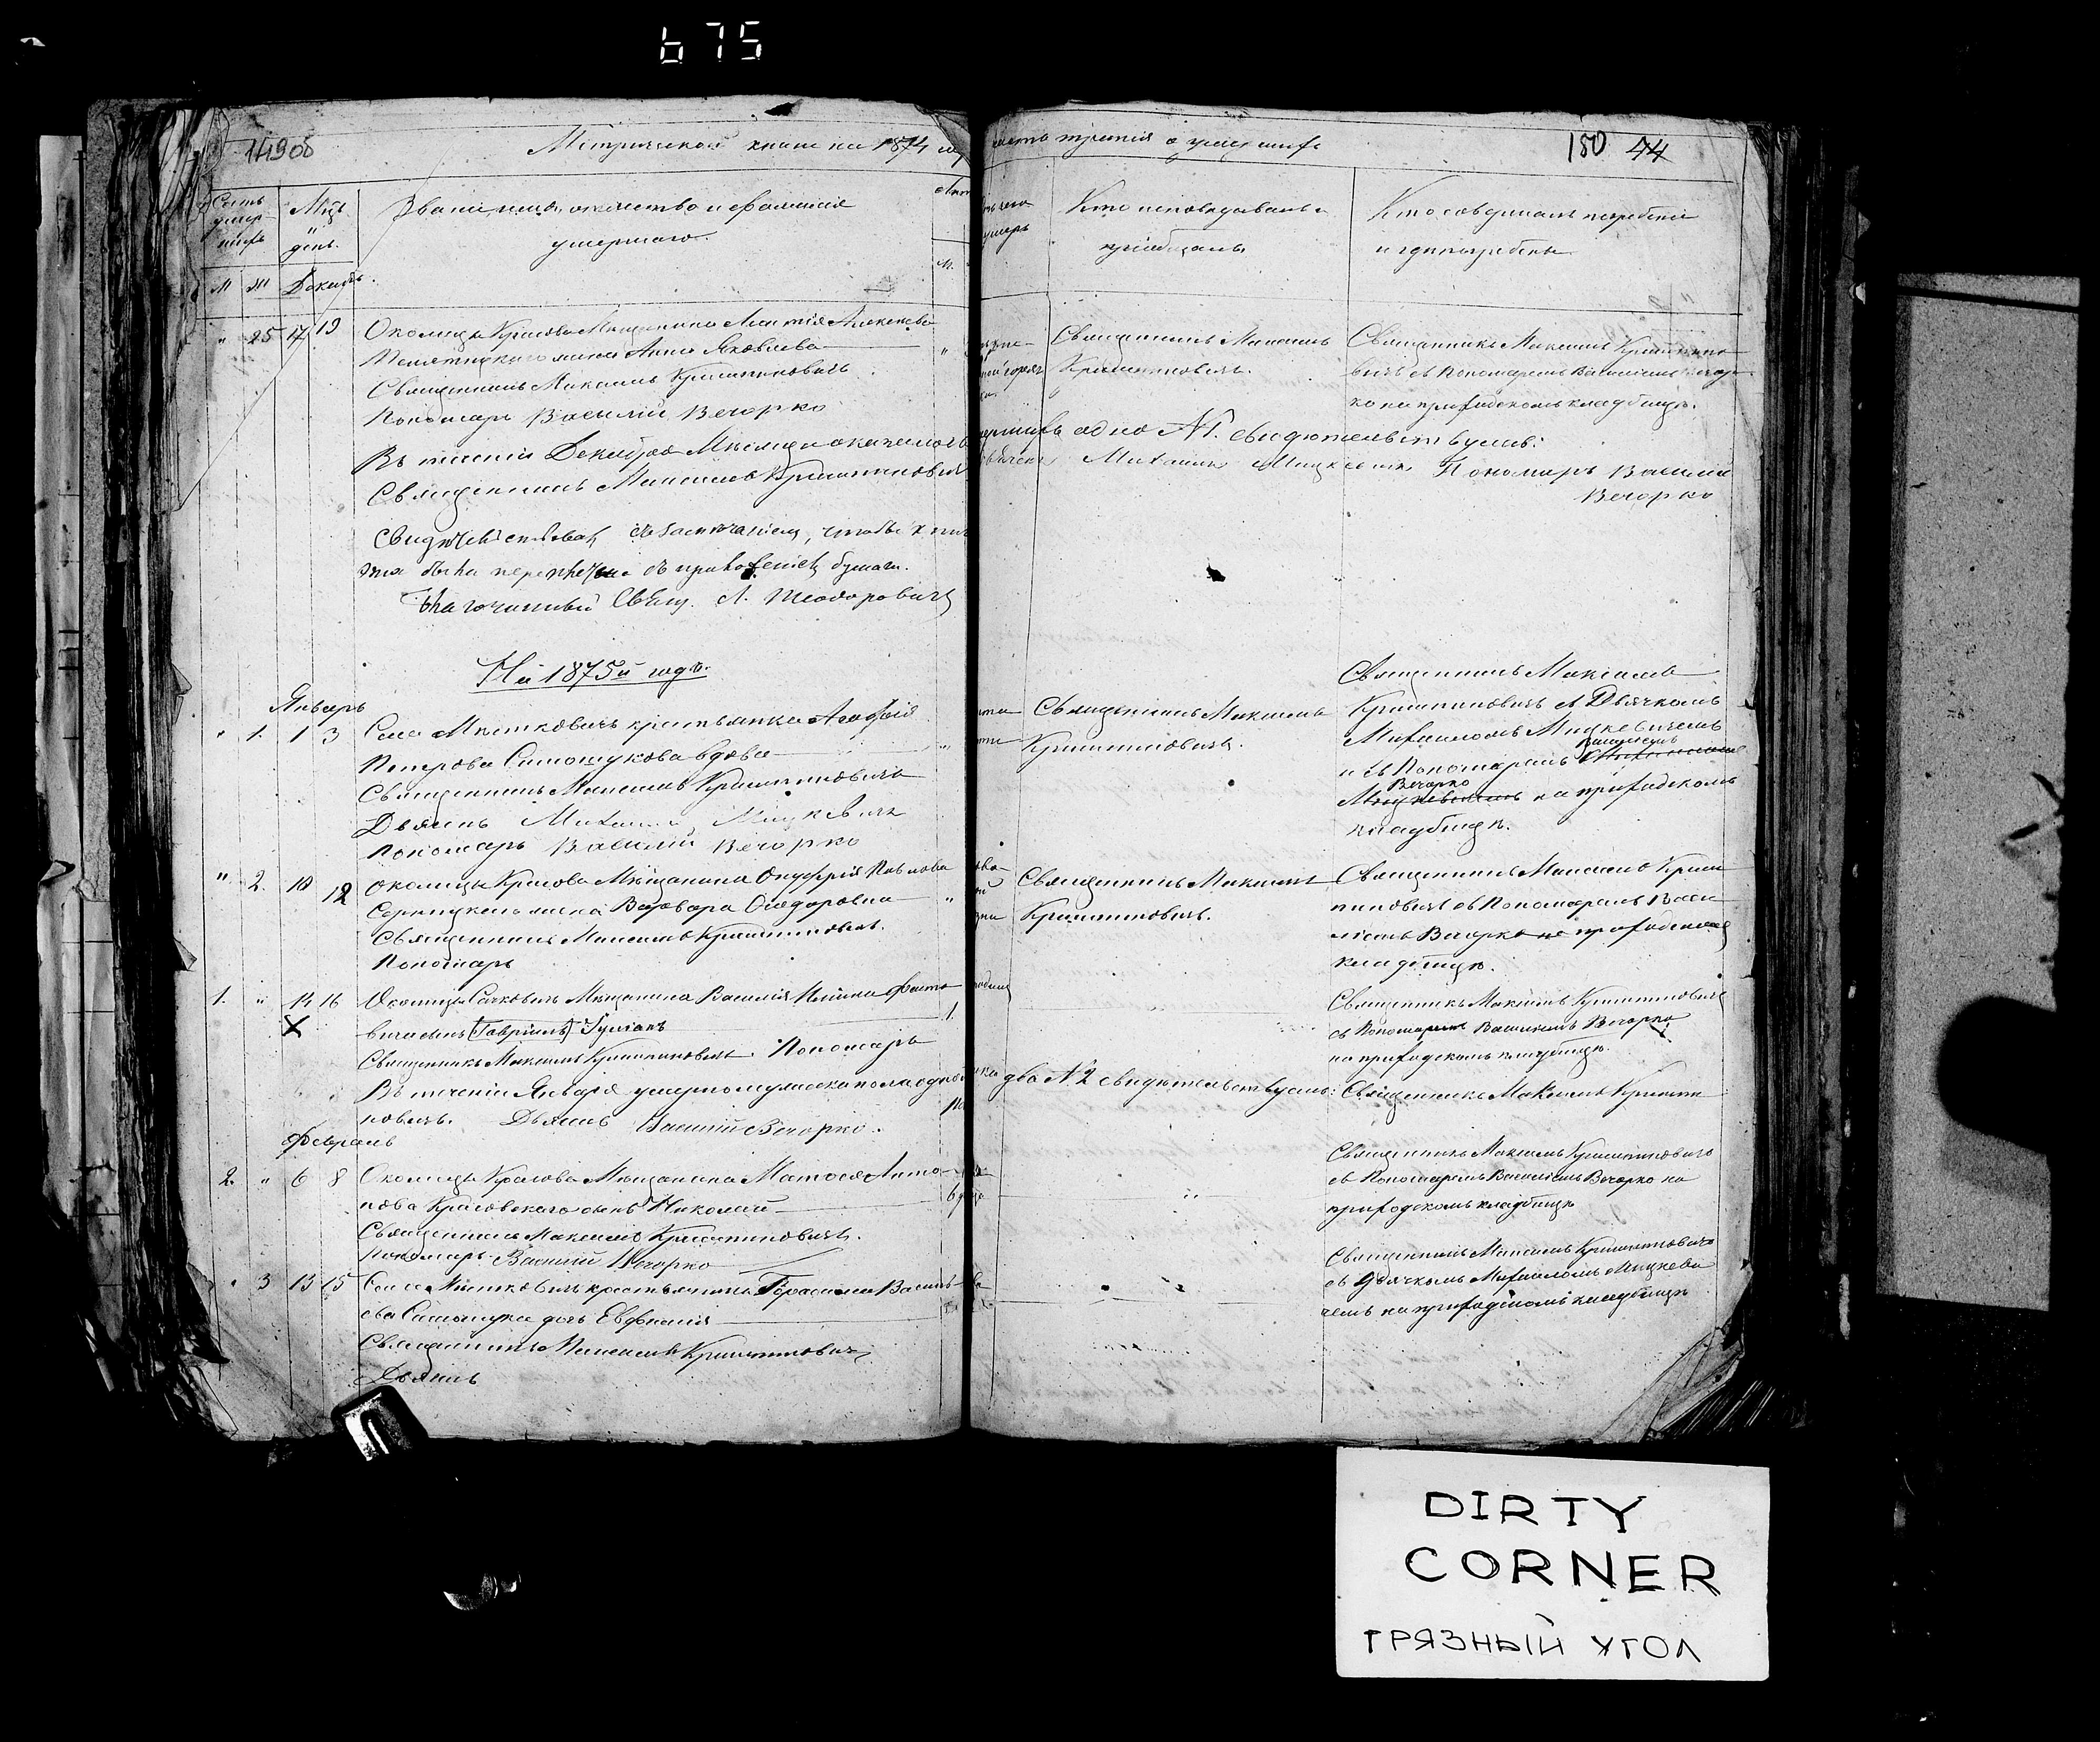 675
149об
Метрической книги на 1874 часть третія о умершихъ
180 44
Счетъ умер-шихъ
Мѣц. и день.
Званіе, имя, отчество и фамилія
умершаго.
Кто исповѣдывалъ и
пріобщалъ
Кто совершалъ погребеніе
и гдѣ погребены
М Ж Декабрь.
М.
" 25 17 19
Околицы Красова Мѣщанина Алексѣева
жена Анна Яковлева
Священникъ Максимъ Криштиновичъ
Пономарь Василій Вечорко
Священникъ Максимъ
Криштиновичъ.
Священникъ Максимъ Криштино-
вичъ съ Пономаремъ Василіемъ Вечор-
ко на приходскомъ кладбищѣ.
Въ теченіи Декабря Мѣсяца женскаго умершихъ одно №1. свидѣтельствуемъ:
Священникъ Максимъ Криштиновичъ Михаилъ Мицкевичъ Пономарь Василій
Вечорко
Свидѣтельствовалъ съ замѣчаніемъ, чтобы
эта была переплетена съ приложеніемъ бумаги.
Благочинный Свящ. Л. Теодоровичъ
На 1875й годъ.
Январь
" 1. 1 3
Села крестьянка Агафія
Петрова Симощукова вдова
Священникъ Максимъ Криштиновичъ
Дьячекъ Михаилъ Мицкевичъ
Пономарь Василій Вечорко
Священникъ Максимъ
Криштиновичъ.
Священникъ Максимъ
Криштиновичъ съ Дьячкомъ
Михаиломъ Мицкевичемъ
и съ Пономаремъ Василіемъ
Вечорко на приходскомъ
кладбищѣ.
" 2. 10 12
Околицы Красова Мѣщанина Онуфрія Павлова
жена Варвара Ѳеодорова
Священникъ Максимъ Криштиновичъ.
Пономарь
Священникъ Максимъ
Криштиновичъ.
Священникъ Максимъ Криш
тиновичъ съ Пономаремъ Васи
ліемъ Вечорко на приходскомъ
кладбищѣ.
1. " 14 16
Околицы Сачковичъ Мѣщанина Василія
сынъ (Гавріилъ) Іуліанъ
1.
Священникъ Максимъ Криштиновичъ. Пономарь
Священникъ Максимъ Криштиновичъ
съ Пономаремъ Василіемъ Вечорко
на приходскомъ кладбищѣ.
Въ теченіи Января умерло мужеска пола одно два №2 свидѣтельствуемъ: Священникъ Максимъ Кришти
новичъ. Дьячекъ Василій Вечорко.
Февраль
2. " 6 8
Околицы Красова Мѣщанина Матѳея Анто-
нова Красовскаго сынъ Николай
Священникъ Максимъ Криштиновичъ.
Пономарь Василій Вечорко
Священникъ Максимъ Криштиновичъ
съ Пономаремъ Василіемъ Вечорко на
приходскомъ кладбищѣ
" 3 13 15
Села крестьянина Герасима Василь-
ева Симощука дочь Евфимія
Священникъ Максимъ Криштиновичъ
Дьячекъ
Священникъ Максимъ Криштиновичъ
съ Дьячкомъ Михаиломъ Мицкеви
чемъ на приходскомъ кладбищѣ
DIRTY
CORNER
ГРЯЗНЫЙ УГОЛ